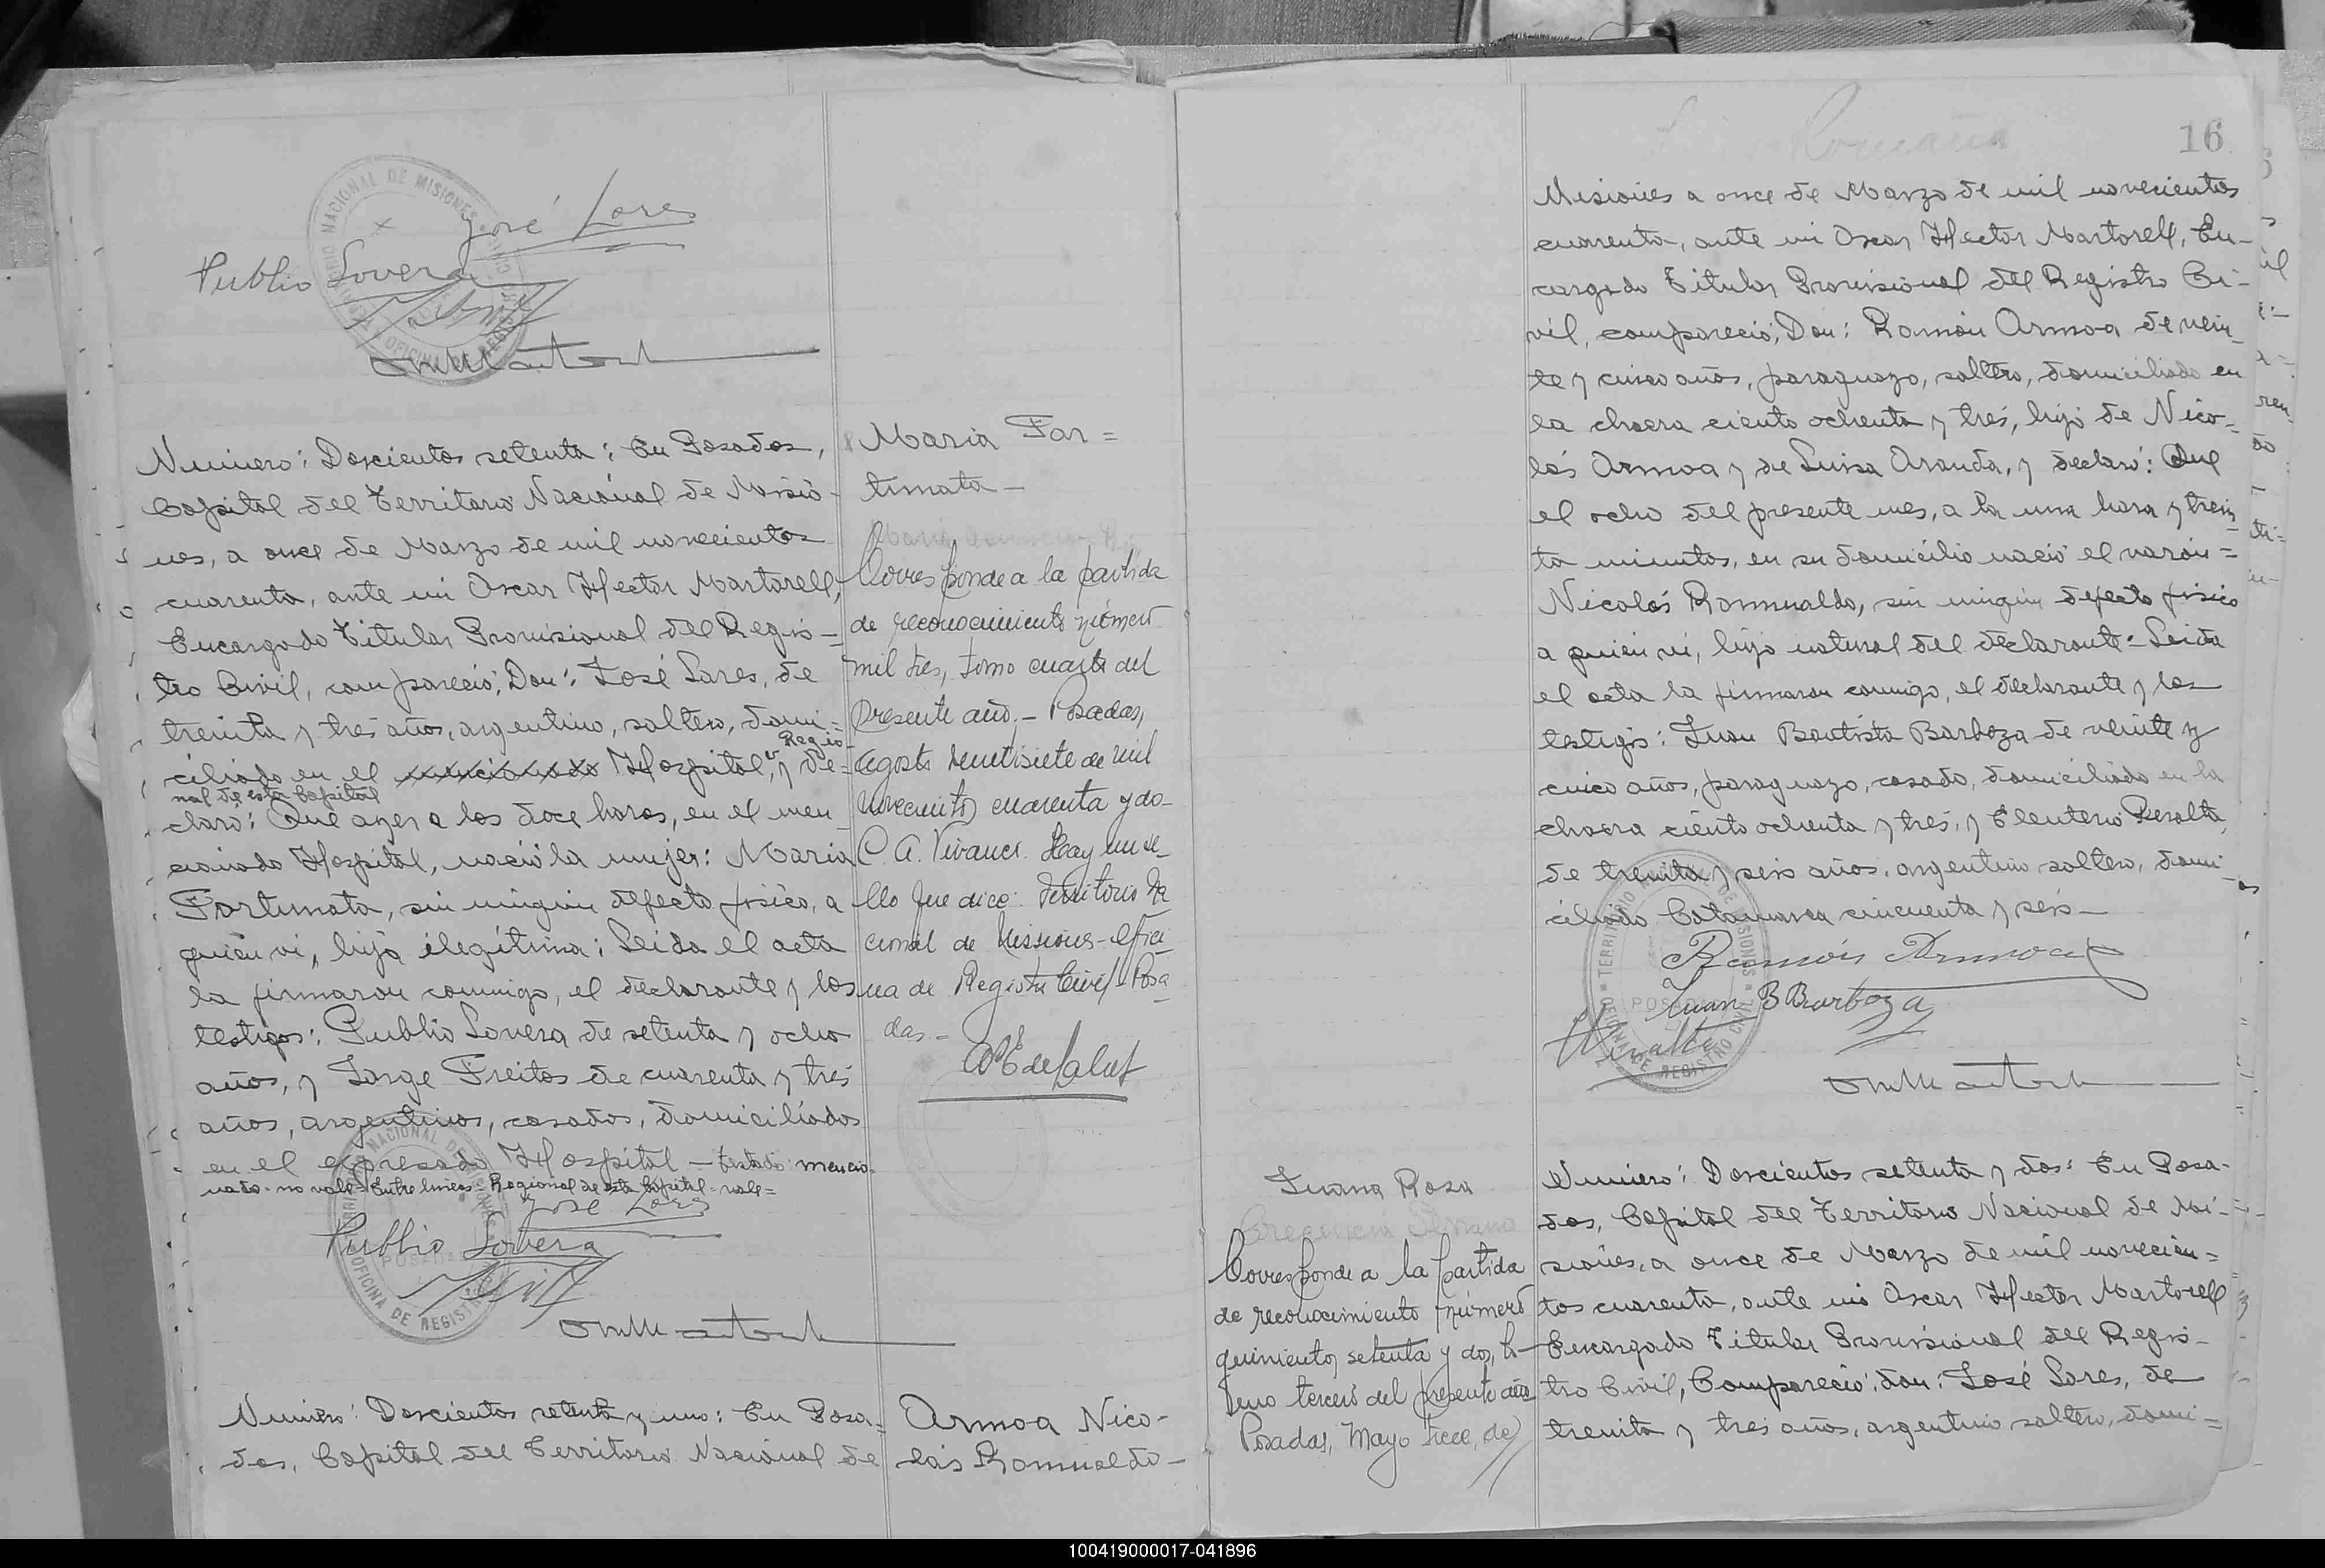 José Lares
Publio Lovera
Numero: Doscientos setenta: En Posadas,
Capital del Territorio Nacional de Misio-
nes, a once de Marzo de mil novecientos
cuarenta, ante mi Oscar Hector Martorell,
Encargado Titular Provisional del Regis-
tro Civil, compareció; Don: José Lares, de
treinta y tres años, argentino, soltero, domi-
Regio-
ciliado en el mencionado Hospital, y de-
nal de esta Capital
claró: Que ayer a las doce horas, en el men-
cionado Hospital, nació la mujer: Maria
Fortunata, sin ningún defecto fisico, a
quien vi, hija ilegítima: Leida el acta
la firmaron conmigo, el declarante y los
testigos: Publio Lovera de setenta y ocho
años, y Jorge Freitas de cuarenta y tres
años, argentinos, casados, domiciliados
en el expresado Hospital - testado: mencio-
nado - no vale - Entre lineas - Regional de esta Capital - vale =
José Lares
Publio Lovera
Numero: Doscientos setenta y uno: En Posa-
das, Capital del Territorio Nacional de
Maria For=
tunata -
Corresponde a la partida
de reconocimiento número
mil tres, tomo cuarto del
presente año. - Posadas,
Agosto veintisiete de mil
novecientos cuarenta y do-
C. A. Vivanco. Hay un se-
llo que dice: Territorio Na
cional de Misiones - Ofici-
na de Registro Civil - Posa-
das -
Armoa Nico-
lás Romualdo -
16
Misiones a once de Marzo de mil novecientos
cuarenta, ante mi Oscar Hector Martorell, En-
cargado Titular Provisional del Registro Ci-
vil, compareció; Don: Ramón Armoa de vein-
te y cinco años, paraguayo, soltero, domiciliado en
la chacra ciento ochenta y tres, hijo de Nico-
lás Armoa y de Luisa Aranda, y declaró: Que
el ocho del presente mes, a la una hora y trein
ta minutos, en su domicilio nació el varón =
Nicolás Romualdo, sin ningún defecto fisico
a quien vi, hijo natural del declarante: Leida
el acta la firmaron conmigo, el declarante y los
testigos: Juan Bautista Barboza de veinte y
cinco años, paraguayo, casado, domiciliado en la
chacra ciento ochenta y tres, y Eleuterio Peralta,
de treinta y seis años, argentino soltero, domi-
ciliado Catamarca cincuenta y seis -
Ramón Armoa
Juan B Barboza
Juana Rosa
Corresponde a la partida
de reconocimiento número
quinientos setenta y dos, to-
mo tercero del presente año
Posadas, Mayo trece, de
Numero: Doscientos setenta y dos: En Posa-
das, Capital del Territorio Nacional de Mi-
siones, a once de Marzo de mil novecien=
tos cuarenta, ante mi Oscar Hector Martorell
Encargado Titular Provisional del Regis-
tro Civil, Compareció; don: José Lares, de
treinta y tres años, argentino soltero, domi=
100419000017-041896